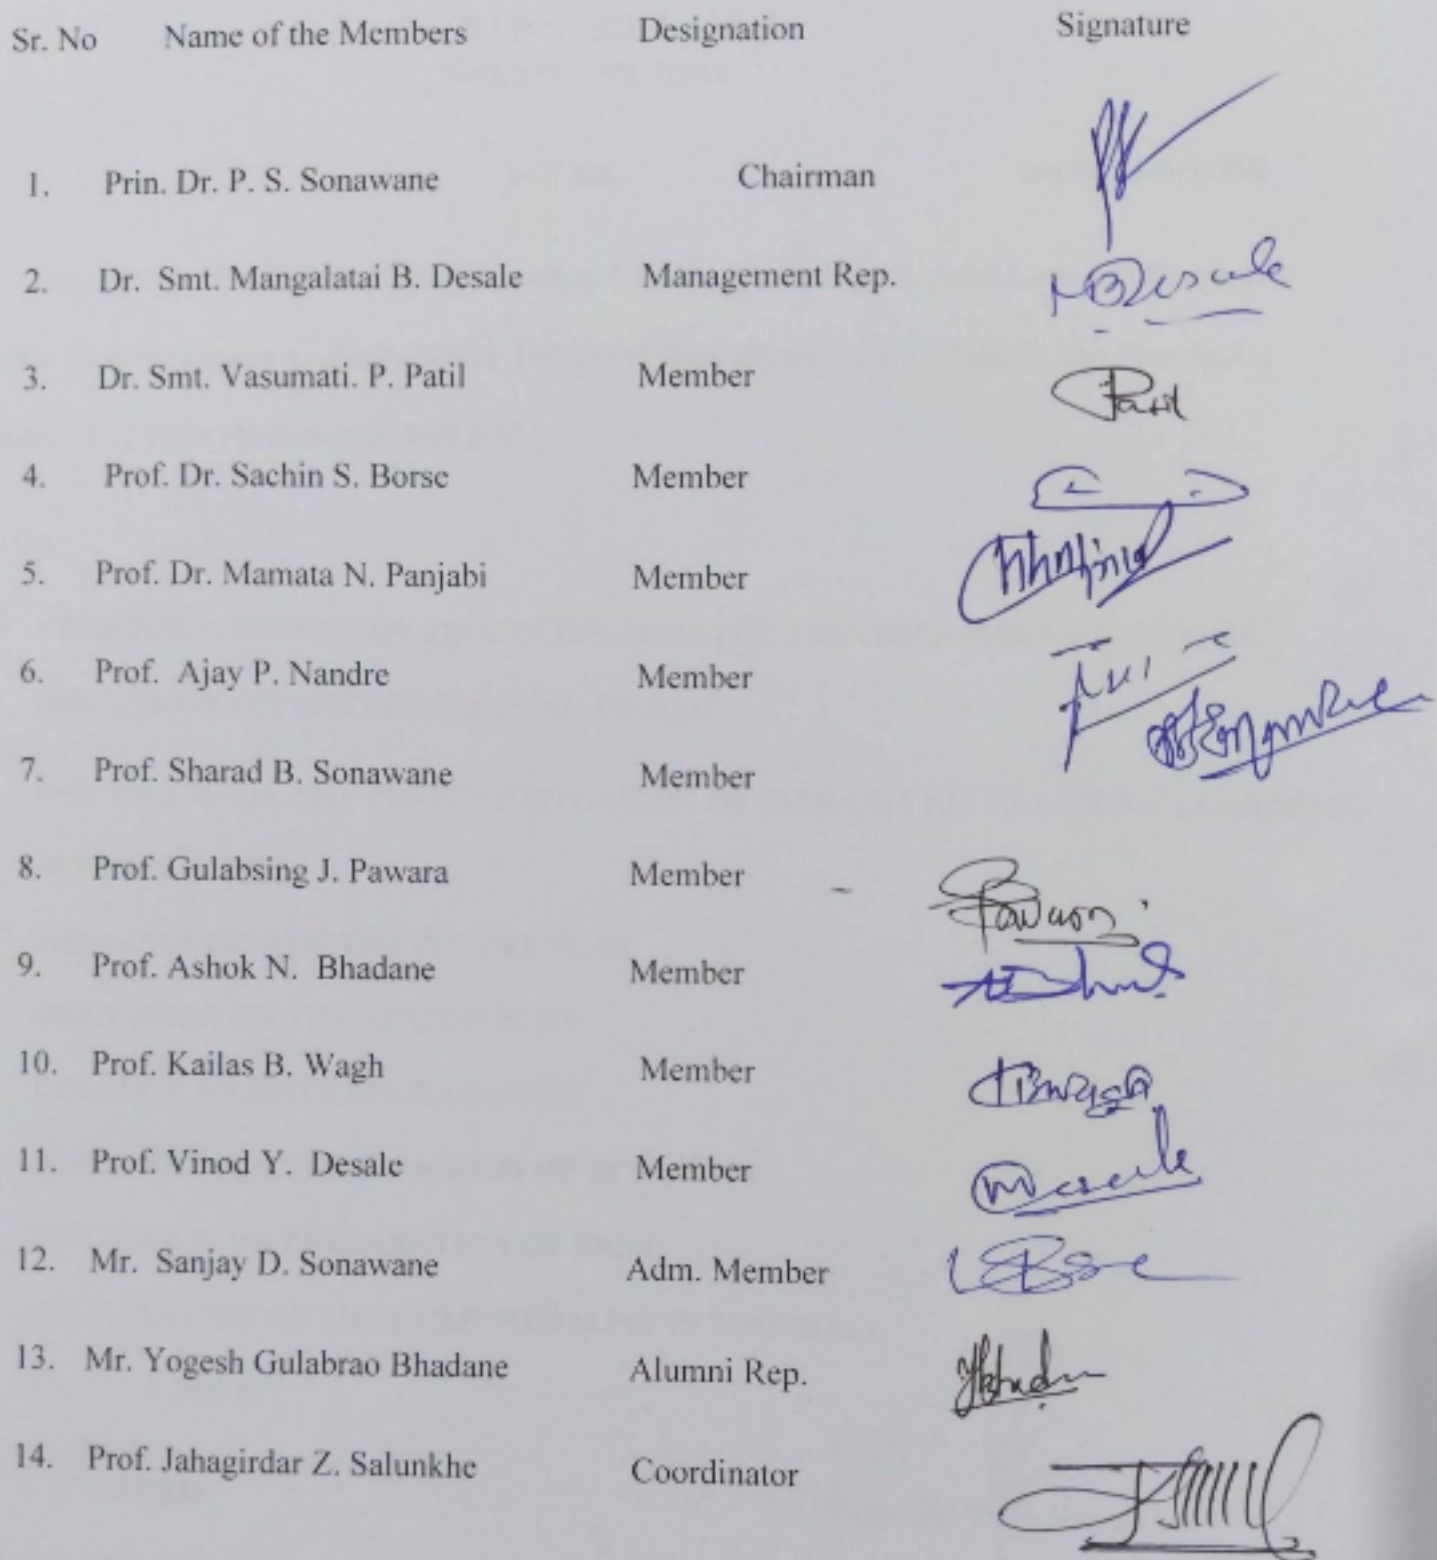 Sr. No Name of the Members Designation Signature
1. Prin. Dr. P. S. Sonawane Chairman
2. Dr. Smt. Mangalatai B. Desale Management Rep. MBDesale
3. Dr. Smt. Vasumati. P. Patil Member Patil
4. Prof. Dr. Sachin S. Borse Member
5. Prof. Dr. Mamata N. Panjabi Member
6. Prof. Ajay P. Nandre Member
7. Prof. Sharad B. Sonawane Member
8. Prof. Gulabsing J. Pawara Member
9. Prof. Ashok N. Bhadane Member
10. Prof. Kailas B. Wagh Member
11. Prof. Vinod Y. Desale Member
12. Mr. Sanjay D. Sonawane Adm. Member
13. Mr. Yogesh Gulabrao Bhadane Alumni Rep.
14. Prof. Jahagirdar Z. Salunkhe Coordinator